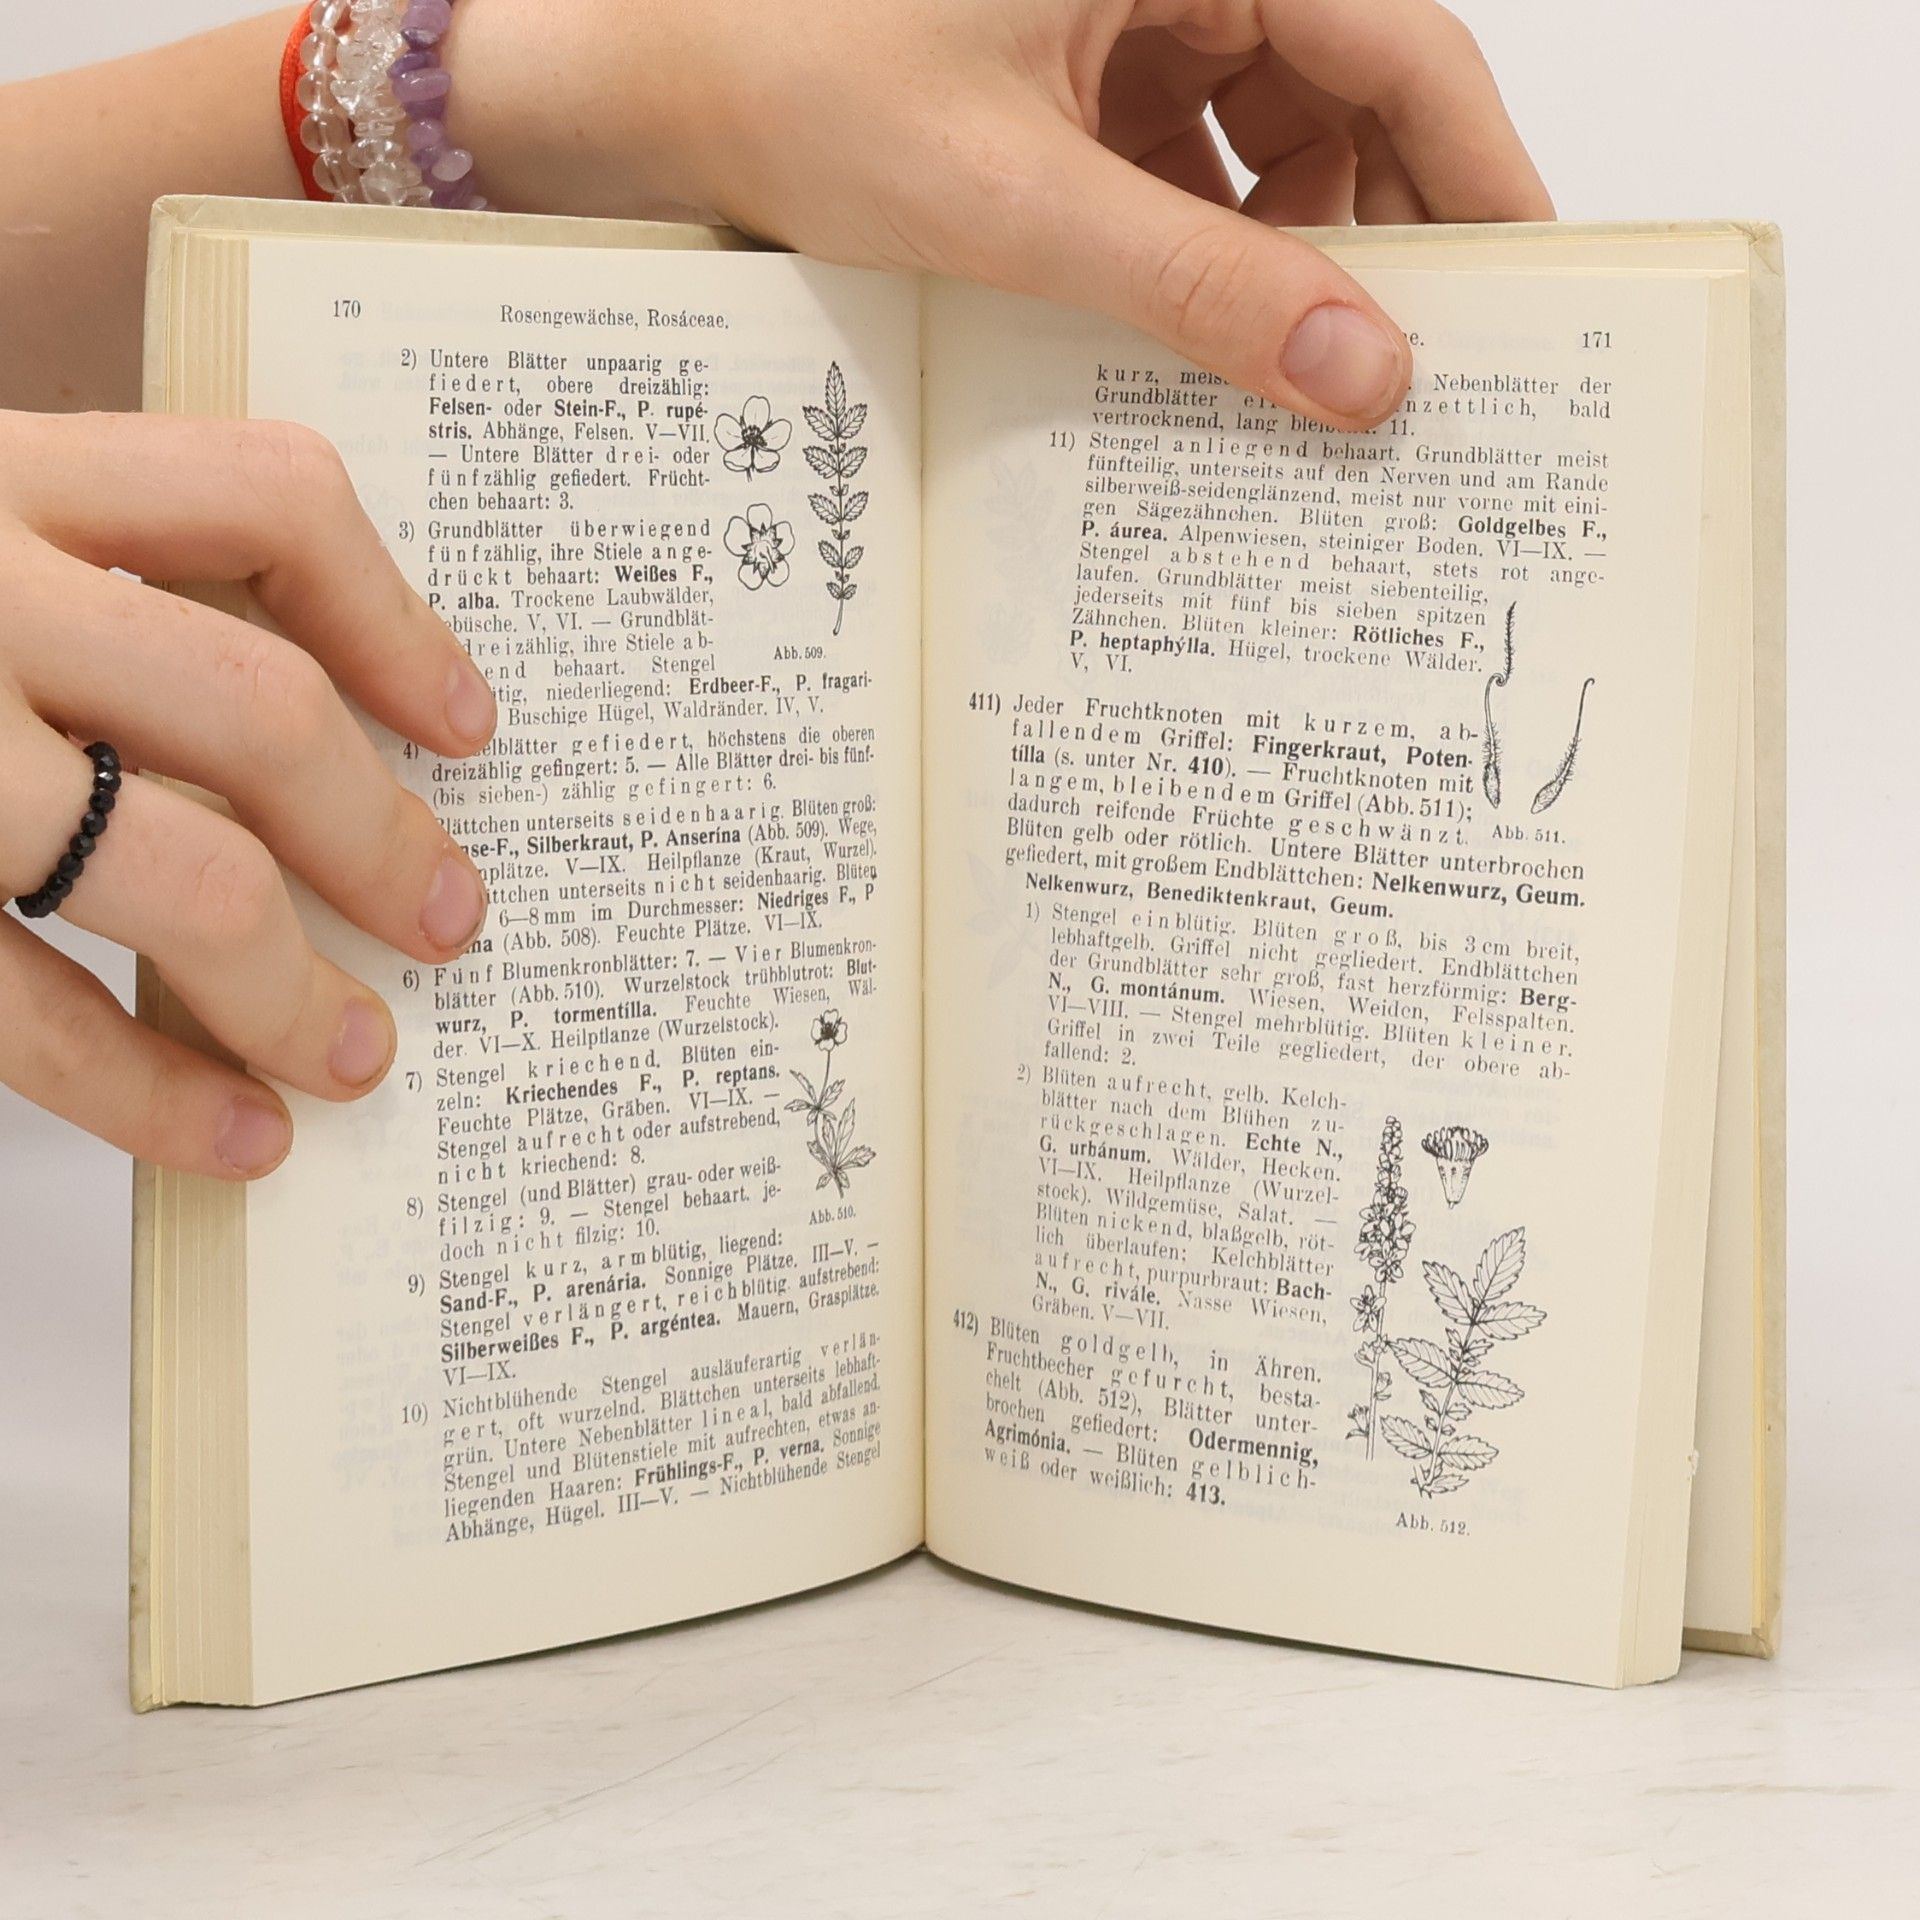 170
Rosengewächse, Rosáceae.
2) Untere Blätter unpaarig ge-
fiedert, obere dreizählig:
Felsen- oder Stein-F., P. rupé-
stris. Abhänge, Felsen. V—VII.
— Untere Blätter drei- oder
fünfzählig gefiedert. Frücht-
chen behaart: 3.
3) Grundblätter überwiegend
fünfzählig, ihre Stiele ange-
drückt behaart: Weißes F.,
P. alba. Trockene Laubwälder,
ebüsche. V, VI. — Grundblät-
dreizählig, ihre Stiele ab-
end behaart. Stengel
ütig, niederliegend: Erdbeer-F., P. fragari-
Buschige Hügel, Waldränder. IV, V.
Abb. 509.
4) elblätter gefiedert, höchstens die oberen
dreizählig gefingert: 5. — Alle Blätter drei- bis fünf-
(bis sieben-) zählig gefingert: 6.
Blättchen unterseits seidenhaarig. Blüten groß:
nse-F., Silberkraut, P. Anserína (Abb. 509). Wege,
nplätze. V—IX. Heilpflanze (Kraut, Wurzel).
ättchen unterseits nicht seidenhaarig. Blüten
6—8 mm im Durchmesser: Niedriges F., P
na (Abb. 508). Feuchte Plätze. VI—IX.
6) Fünf Blumenkronblätter: 7. — Vier Blumenkron-
blätter (Abb. 510). Wurzelstock trübblutrot: Blut-
wurz, P. tormentílla. Feuchte Wiesen, Wäl-
der. VI—X. Heilpflanze (Wurzelstock).
7) Stengel kriechend. Blüten ein-
zeln: Kriechendes F., P. reptans.
Feuchte Plätze, Gräben. VI—IX. —
Stengel aufrecht oder aufstrebend,
nicht kriechend: 8.
8) Stengel (und Blätter) grau- oder weiß-
filzig: 9. — Stengel behaart, je-
doch nicht filzig: 10.
Abb. 510.
9) Stengel kurz, armblütig, liegend:
Sand-F., P. arenária. Sonnige Plätze. III—V. —
Stengel verlängert, reichblütig. aufstrebend:
Silberweißes F., P. argéntea. Mauern, Grasplätze.
VI—IX.
10) Nichtblühende Stengel ausläuferartig verlän-
gert, oft wurzelnd. Blättchen unterseits lebhaft-
grün. Untere Nebenblätter lineal, bald abfallend.
Stengel und Blütenstiele mit aufrechten, etwas an-
liegenden Haaren: Frühlings-F., P. verna. Sonnige
Abhänge, Hügel. III—V. — Nichtblühende Stengel
e.
171
kurz, meis Nebenblätter der
Grundblätter nzettlich, bald
vertrocknend, lang 11.
11) Stengel anliegend behaart. Grundblätter meist
fünfteilig, unterseits auf den Nerven und am Rande
silberweiß-seidenglänzend, meist nur vorne mit eini-
gen Sägezähnchen. Blüten groß: Goldgelbes F.,
P. áurea. Alpenwiesen, steiniger Boden. VI—IX. —
Stengel abstehend behaart, stets rot ange-
laufen. Grundblätter meist siebenteilig,
jederseits mit fünf bis sieben spitzen
Zähnchen. Blüten kleiner: Rötliches F.,
P. heptaphýlla. Hügel, trockene Wälder.
V, VI.
411) Jeder Fruchtknoten mit kurzem, ab-
fallendem Griffel: Fingerkraut, Poten-
tílla (s. unter Nr. 410). — Fruchtknoten mit
langem, bleibendem Griffel (Abb. 511);
dadurch reifende Früchte geschwänzt.
Abb. 511.
Blüten gelb oder rötlich. Untere Blätter unterbrochen
gefiedert, mit großem Endblättchen: Nelkenwurz, Geum.
Nelkenwurz, Benediktenkraut, Geum.
1) Stengel einblütig. Blüten groß, bis 3 cm breit,
lebhaftgelb. Griffel nicht gegliedert. Endblättchen
der Grundblätter sehr groß, fast herzförmig: Berg-
N., G. montánum. Wiesen, Weiden, Felsspalten.
VI—VIII. — Stengel mehrblütig. Blüten kleiner.
Griffel in zwei Teile gegliedert, der obere ab-
fallend: 2.
2) Blüten aufrecht, gelb. Kelch-
blätter nach dem Blühen zu-
rückgeschlagen. Echte N.,
G. urbánum. Wälder, Hecken.
VI—IX. Heilpflanze (Wurzel-
stock). Wildgemüse, Salat. —
Blüten nickend, blaßgelb, röt-
lich überlaufen; Kelchblätter
aufrecht, purpurbraut: Bach-
N., G. rivále. Nasse Wiesen,
Gräben. V—VII.
412) Blüten goldgelb, in Ähren.
Fruchtbecher gefurcht, besta-
chelt (Abb. 512), Blätter unter-
brochen gefiedert: Odermennig,
Agrimónia. — Blüten gelblich-
weiß oder weißlich: 413.
Abb. 512.